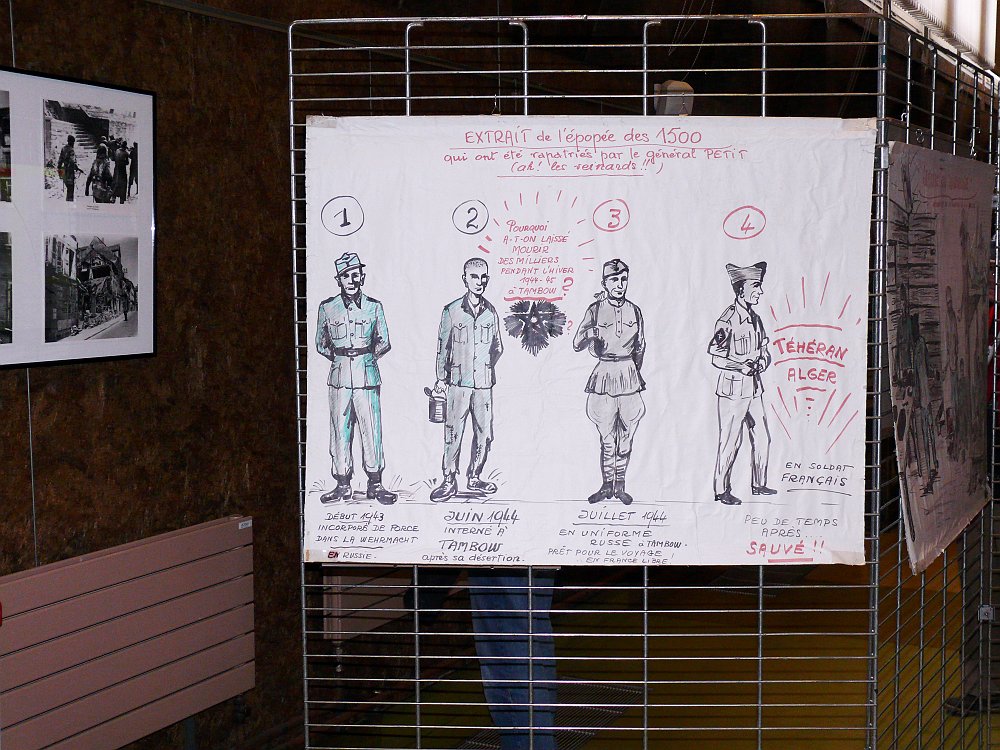 EXTRAIT de l'épopée des 1500
qui ont été rapatriés par le général PETIT
(ah! les veinards!!)
1
2
3
4
POURQUOI
A-T-ON LAISSÉ
MOURIR
DES MILLIERS
PENDANT L'HIVER
1944-45
à TAMBOW ?
?
TÉHÉRAN
ALGER
EN SOLDAT
FRANÇAIS
DÉBUT 1943
INCORPORÉ DE FORCE
DANS LA WEHRMACHT
EN RUSSIE.
JUIN 1944
INTERNÉ À
TAMBOW
après sa désertion.
JUILLET 1944
EN UNIFORME
RUSSE à TAMBOW.
PRÊT POUR LE VOYAGE
EN FRANCE LIBRE!
PEU DE TEMPS
APRÈS...
SAUVÉ!!